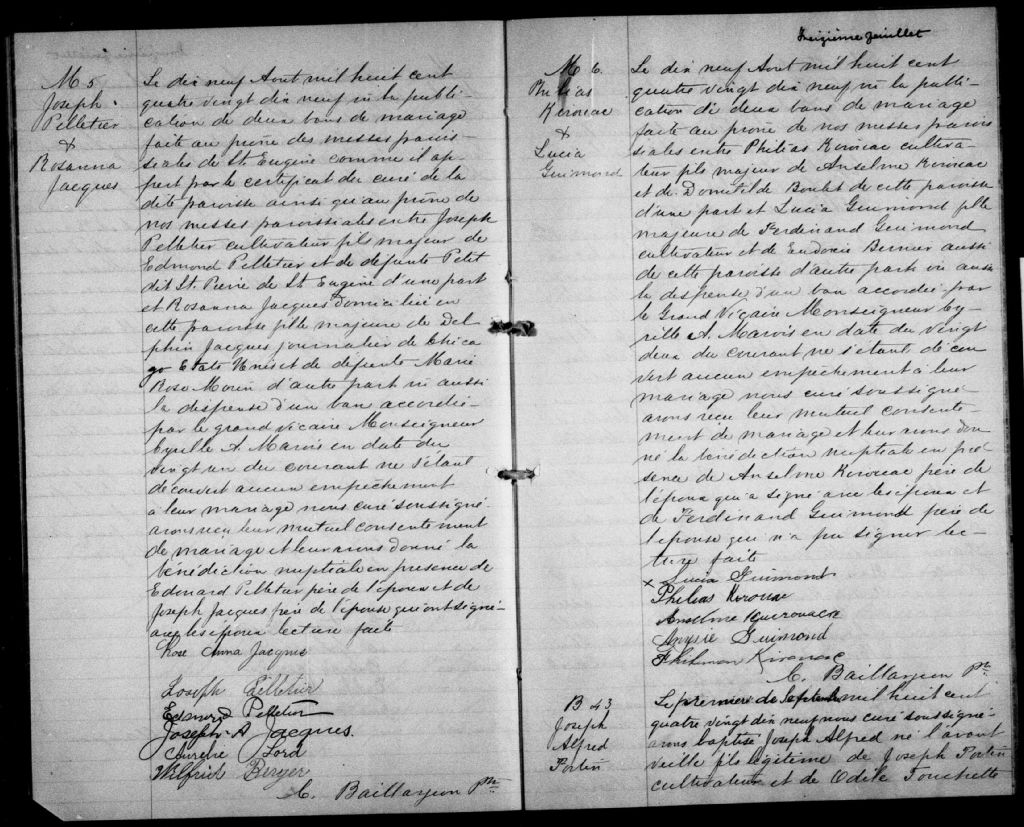 M 5
Joseph
Pelletier
&
Rosanna
Jacques
Le dix neuf Aout mil huit cent
quatre vingt dix neuf vu la publi-
cation de deux bans de mariage
faite au prône des messes parois-
siales de St. Eugène comme il ap-
pert par le certificat du curé de la
dite paroisse ainsi qu'au prône de
nos messes paroissiales entre Joseph
Pelletier cultivateur fils majeur de
Edmond Pelletier et de défunte Petit
dit St. Pierre de St. Eugène d'une part
et Rosanna Jacques domiciliée en
cette paroisse fille majeure de Del-
phin Jacques journalier de Chica
go Etats Unis et de défunte Marie
Rose Morin d'autre part vu aussi
la dispense d'un ban accordée
par le grand vicaire Monseigneur
Cyrille A. Marois en date du
vingt un du courant ne s'étant
découvert aucun empêchement
à leur mariage nous curé soussigné
avons reçu leur mutuel consentement
de mariage et leur avons donné la
bénédiction nuptiale en présence de
Edouard Pelletier père de l'époux et de
Joseph Jacques père de l'épouse qui ont signé
avec les époux lecture faite
Rose Anna Jacques
Joseph Pelletier
Edmond Pelletier
Joseph A Jacques.
Aurelie Lord
Wilfrid Berger
C. Baillargeon Ptre
Treizième feuillet
M 6.
Philias
Kirouac
&
Lucia
Guimond
Le dix neuf Aout mil huit cent
quatre vingt dix neuf vu la publi-
cation de deux bans de mariage
faite au prône de nos messes parois
siales entre Philias Kirouac cultiva-
teur fils majeur de Anselme Kirouac
et de Domitilde Boulet de cette paroisse
d'une part et Lucia Guimond fille
majeure de Ferdinand Guimond
cultivateur et de Eudoxie Bernier aussi
de cette paroisse d'autre part vu aussi
la dispense d'un ban accordée par
le Grand Vicaire Monseigneur Cy-
rille A. Marois en date du vingt
deux du courant ne s'étant décou
vert aucun empêchement à leur
mariage nous curé soussigné
avons reçu leur mutuel consente-
ment de mariage et leur avons don
né la bénédiction nuptiale en pré
sence de Anselme Kirouac père de
l'époux qui a signé avec les époux et
de Ferdinand Guimond père de
l'épouse qui n'a pu signer lec-
ture faite
x Lucia Guimond
Philias Kirouac
Anselme Kuerouack
Guimond
Kirouac
C. Baillargeon Ptre
B 43
Joseph
Alfred
Fortin
Le premier de Septembre mil huit cent
quatre vingt dix neuf nous curé soussigné
avons baptisé Joseph Alfred né l'avant
veille fils légitime de Joseph Fortin
cultivateur et de Odile Fouchette